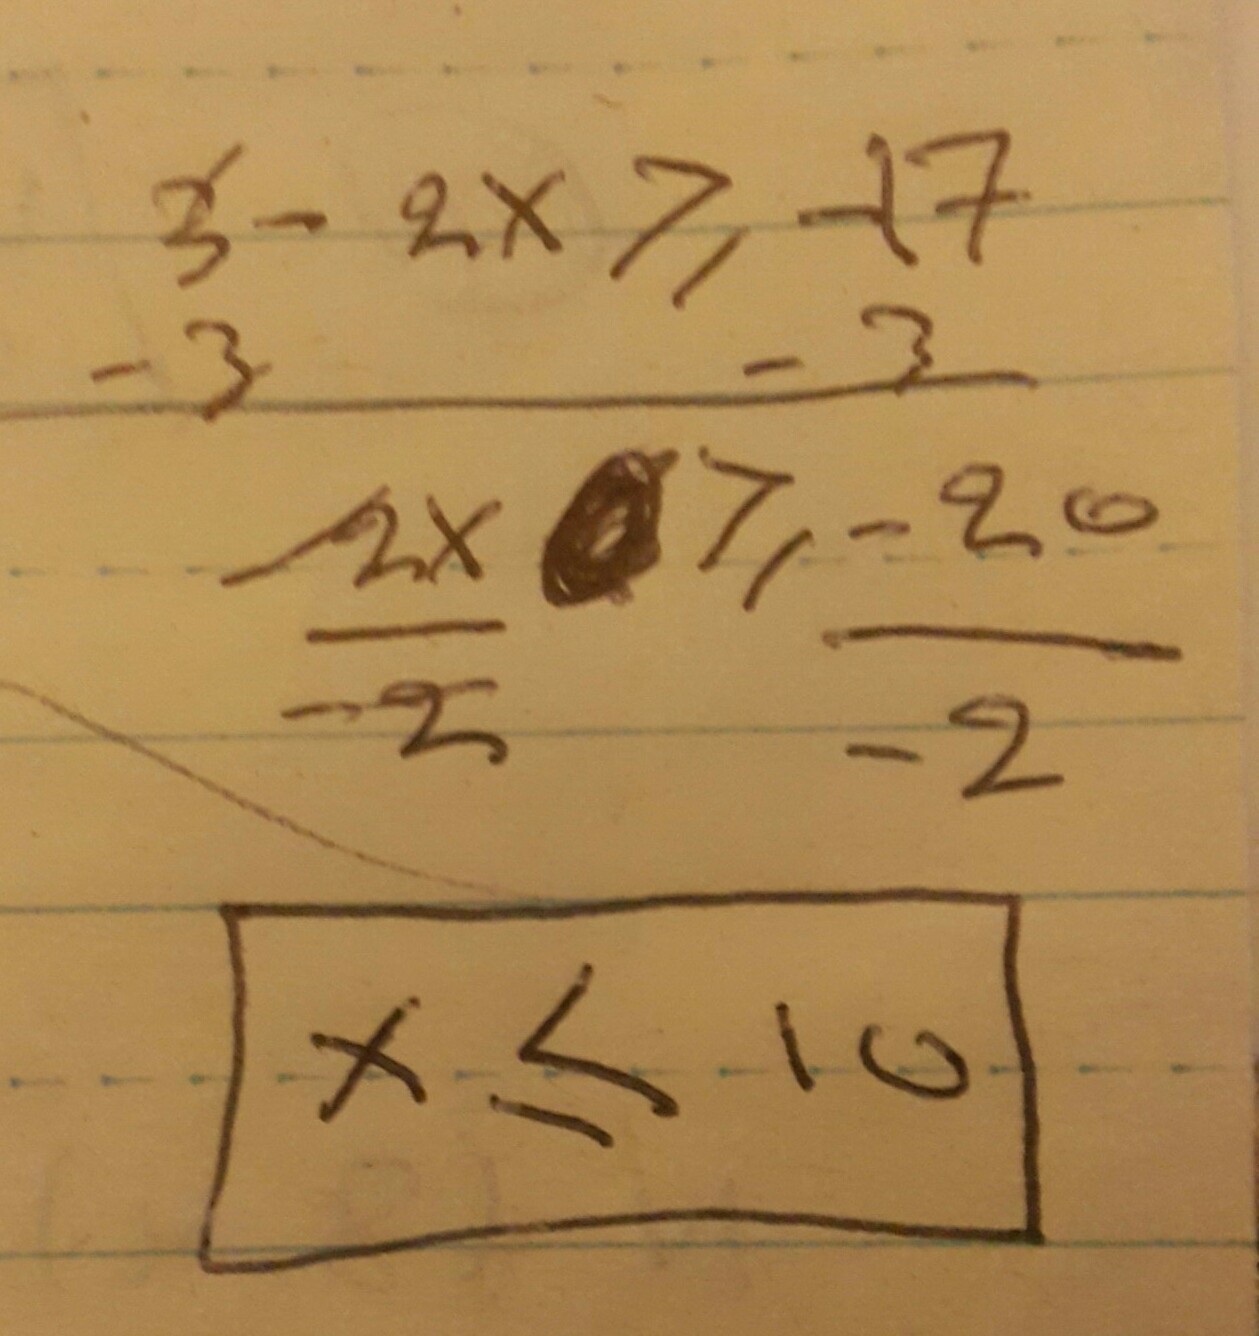 3 - 2x ≥ -17
-3 -3
-2x ≥ -20
-2 -2
x ≤ 10